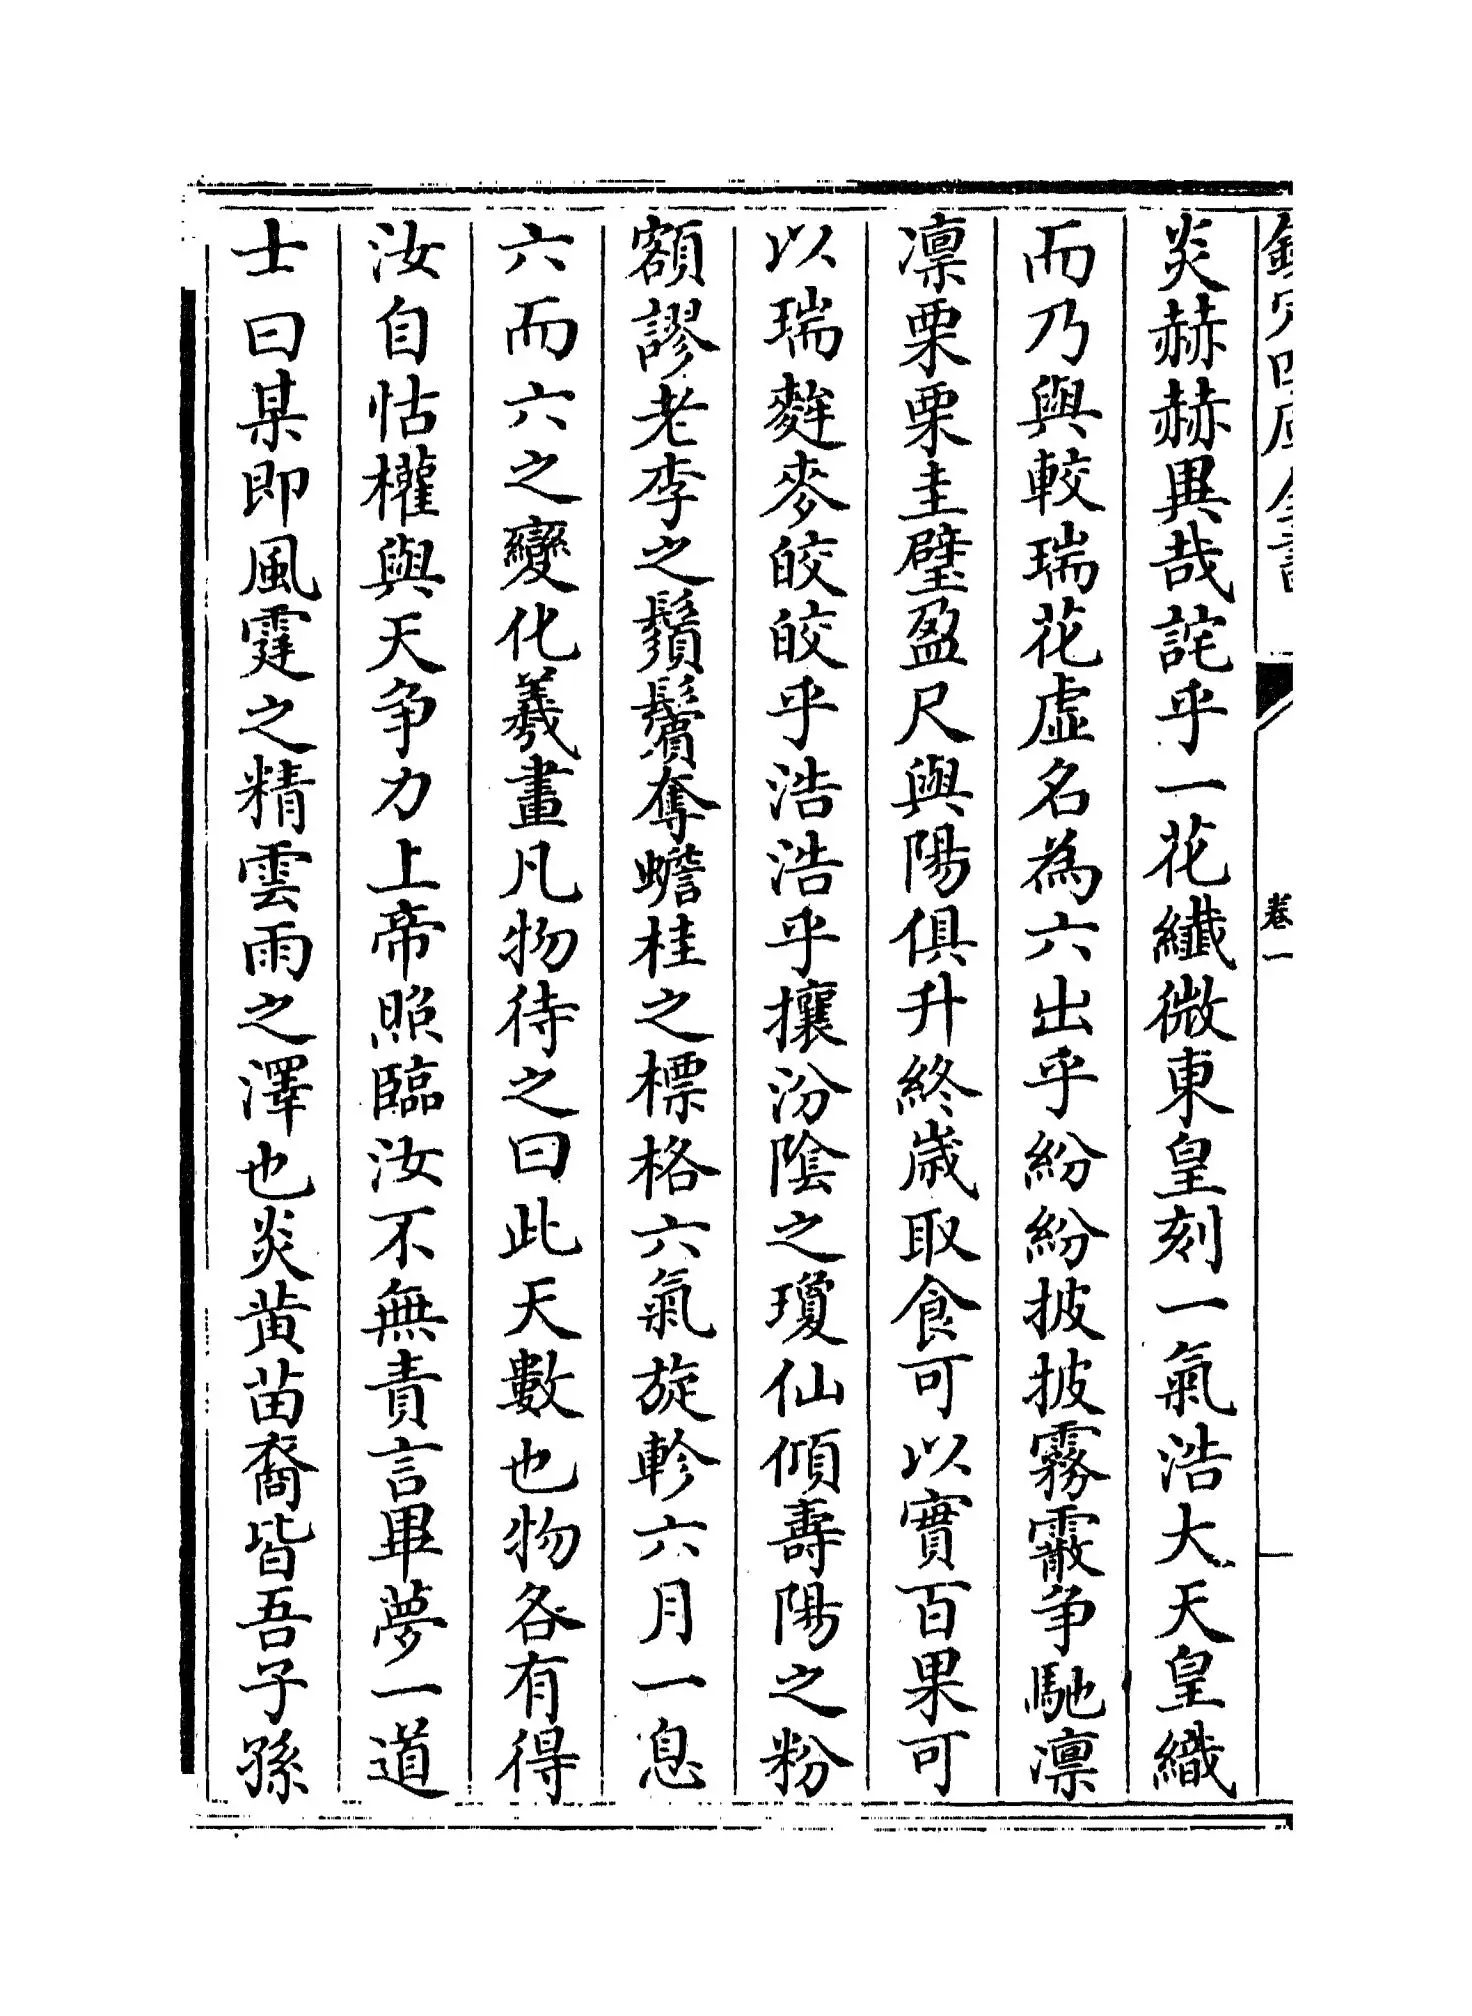 欽定四庫全書
卷一
炎赫赫異哉詫乎一花纖微東皇刻一氣浩大天皇織
而乃與較瑞花虛名為六出乎紛紛披披霧霰争馳凛
凛栗栗圭璧盈尺與陽俱升終歳取食可以實百果可
以瑞麰麥皎皎乎浩浩乎攘汾陰之瓊仙傾壽陽之粉
額謬老李之鬚鬢奪蟾桂之標格六氣旋軫六月一息
六而六之變化羲畫凡物待之曰此天數也物各有得
汝自怙權與天争力上帝照臨汝不無責言畢夢一道
士曰某即風霆之精雲雨之澤也炎黄苗裔皆吾子孫